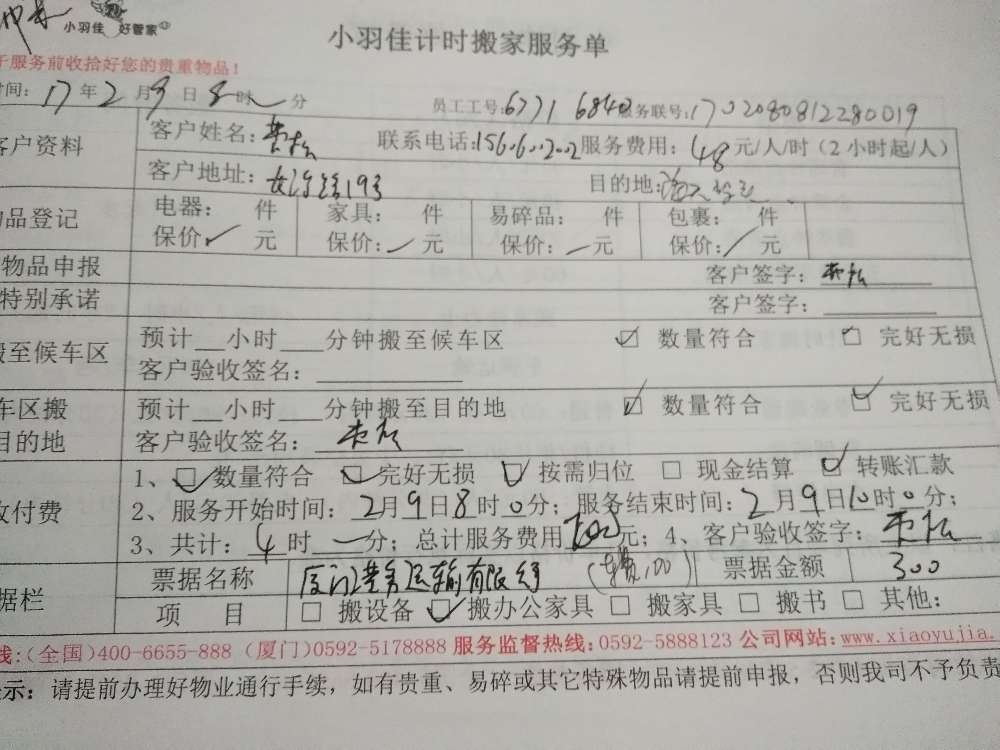 小羽佳 好管家
小羽佳计时搬家服务单
于服务前收拾好您的贵重物品！
时间：17年2月9日8时 分 员工工号：6771 6840 服务联号：1702080812280019
客户资料 客户姓名： 联系电话： 服务费用：48元/人/时（2小时起/人）
客户地址： 目的地：
物品登记 电器： 件 家具： 件 易碎品： 件 包裹： 件
保价： 元 保价： 元 保价： 元 保价： 元
物品申报 客户签字：
特别承诺 客户签字：
搬至候车区 预计__小时___分钟搬至候车区 ☑ 数量符合 ☑ 完好无损
客户验收签名：
车区搬 预计__小时___分钟搬至目的地 ☑ 数量符合 ☑ 完好无损
目的地 客户验收签名：
收付费 1、☑数量符合 ☑完好无损 ☑按需归位 □现金结算 ☑转账汇款
2、服务开始时间：2月9日8时0分；服务结束时间：2月9日10时0分；
3、共计：4时 分；总计服务费用 元；4、客户验收签字：
据栏 票据名称 票据金额 300
项 目 □搬设备 ☑搬办公家具 □搬家具 □搬书 □其他：
线：（全国）400-6655-888（厦门）0592-5178888 服务监督热线：0592-5888123 公司网站：www.xiaoyujia.
示：请提前办理好物业通行手续，如有贵重、易碎或其它特殊物品请提前申报，否则我司不予负责